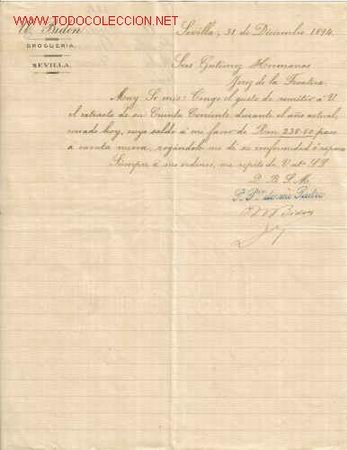 TODOCOLECCION.NET
TU PORTAL DE COLECCIONISMO, ANTIGÜEDADES Y ARTE
Bidon
DROGUERÍA
SEVILLA.
Sevilla, 31 de Diciembre 1894.
Sres Gutierrez Hermanos
Jerez de la Frontera
Muy Sr mio: Tengo el gusto de remitir á V.
el extracto de su Cuenta Corriente durante el año actual,
cerrado hoy, cuyo saldo á mi favor de Ptas 238.60 paso
á cuenta nueva, rogándole me dé su conformidad ó reparos
Siempre á sus ordenes, me repito de V. atº S.S.
Q. B. S. M.
P. Pr. de mi Padre
Bidon